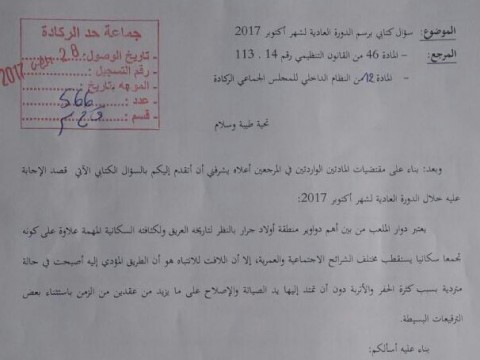 الموضوع: سؤال كتابي برسم الدورة العادية لشهر أكتوبر 2017
المرجع: – المادة 46 من القانون التنظيمي رقم 14 . 113
– المادة 12 من النظام الداخلي للمجلس الجماعي الركادة
جماعة حد الركادة
- تاريخ الوصول: 28 2017
- رقم التسجيل:
- تاريخ:
- عدد : 566
- قسم :
تحية طيبة وسلام
وبعد: بناء على مقتضيات المادتين الواردتين في المرجعين أعلاه يشرفني أن أتقدم إليكم بالسؤال الكتابي الآتي قصد الإجابة
عليه خلال الدورة العادية لشهر أكتوبر 2017:
يعتبر دوار الملعب من بين أهم دواوير منطقة أولاد جرار بالنظر لتاريخه العريق ولكثافته السكانية المهمة علاوة على كونه
تجمعا سكانيا يستقطب مختلف الشرائح الاجتماعية والعمرية، إلا أن اللافت للانتباه هو أن الطريق المؤدي إليه أصبحت في حالة
متردية بسبب كثرة الحفر والأتربة دون أن تمتد إليها يد الصيانة والإصلاح على ما يزيد من عقدين من الزمن باستثناء بعض
الترقيعات البسيطة.
بناء عليه أسألكم: